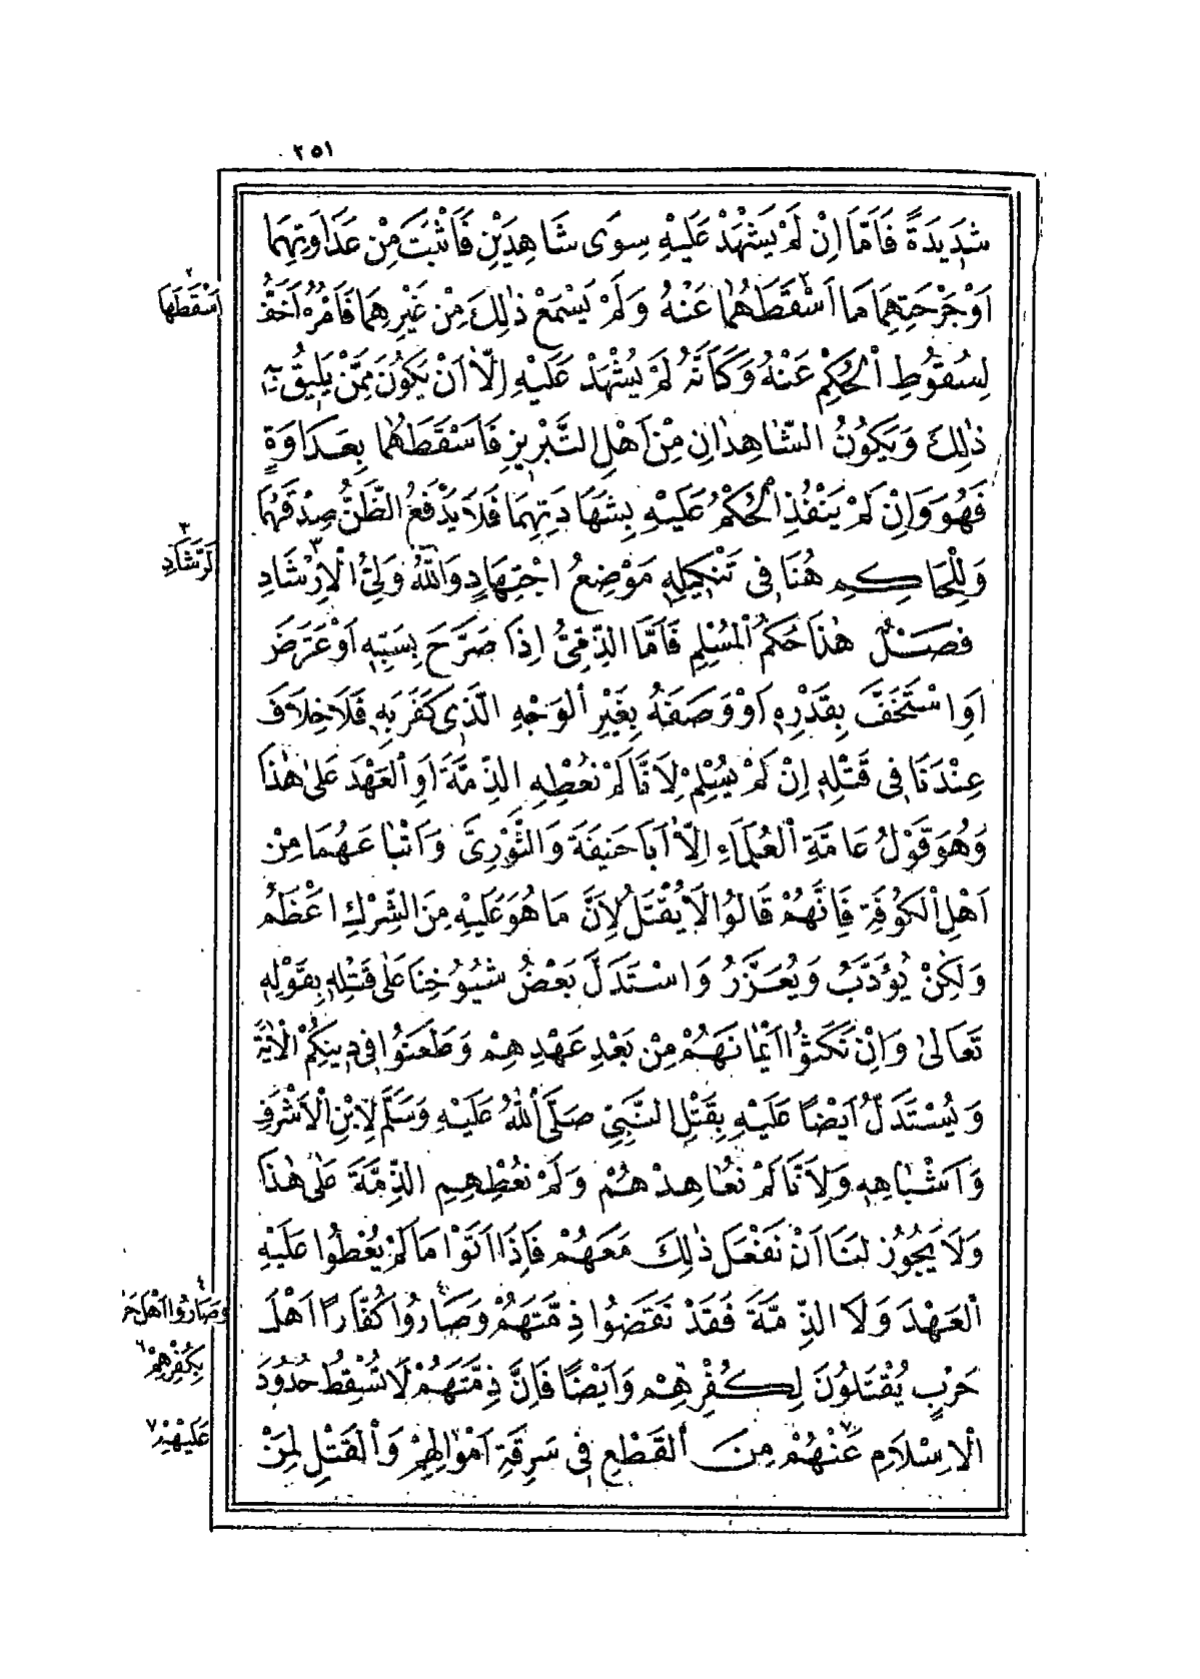 ٢٥١
شَدِيدَةً فَأَمَّا اِنْ لَمْ يَشْهَدْ عَلَيْهِ سِوَى شَاهِدَيْنِ فَأَثْبَتَ مِنْ عَدَاوَتِهِمَا
اَوْ جَرْحَتِهِمَا مَا اَسْقَطَهُمَا٢ عَنْهُ وَلَمْ يَسْمَعْ ذٰلِكَ مِنْ غَيْرِهِمَا فَاَمْرُهُ اَخَفُّ
اَسْقَطَهَا٢
لِسُقُوطِ الْحُكْمِ عَنْهُ وَكَاَنَّهُ لَمْ يُشْهَدْ عَلَيْهِ اِلَّا اَنْ يَكُونَ مِمَّنْ يَلِيقُ بِهِ
ذٰلِكَ وَيَكُونُ الشَّاهِدَانِ مِنْ اَهْلِ التَّبْرِيزِ فَاَسْقَطَهُمَا بِعَدَاوَةٍ
فَهُوَ وَاِنْ لَمْ يَنْفُذِ الْحُكْمُ عَلَيْهِ بِشَهَادَتِهِمَا فَلَا يَدْفَعُ الظَّنُّ صِدْقَهُمَا
وَلِلْحَاكِمِ هُنَا فِى تَنْكِيلِهِ مَوْضِعُ اجْتِهَادٍ وَاللّٰهُ وَلِىُّ الْاِرْشَادِ٣
٣
فَصْلٌ هٰذَا حُكْمُ الْمُسْلِمِ فَاَمَّا الذِّمِّىُّ اِذَا صَرَّحَ بِسَبِّهِ اَوْ عَرَّضَ
اَوِ اسْتَخَفَّ بِقَدْرِهِ اَوْ وَصَفَهُ بِغَيْرِ الْوَجْهِ الَّذِى كَفَرَ بِهِ فَلَا خِلَافَ
عِنْدَنَا فِى قَتْلِهِ اِنْ لَمْ يُسْلِمْ لِاَنَّا لَمْ نُعْطِهِ الذِّمَّةَ اَوِ الْعَهْدَ عَلٰى هٰذَا
وَهُوَ قَوْلُ عَامَّةِ الْعُلَمَاءِ اِلَّا اَبَا حَنِيفَةَ وَالثَّوْرِىَّ وَاَتْبَاعَهُمَا مِنْ
اَهْلِ الْكُوفَةِ فَاِنَّهُمْ قَالُوا لَا يُقْتَلُ لِاَنَّ مَا هُوَ عَلَيْهِ مِنَ الشِّرْكِ اَعْظَمُ
وَلٰكِنْ يُؤَدَّبُ وَيُعَزَّرُ وَاسْتَدَلَّ بَعْضُ شُيُوخِنَا عَلٰى قَتْلِهِ بِقَوْلِهِ
تَعَالٰى وَاِنْ نَكَثُوا اَيْمَانَهُمْ مِنْ بَعْدِ عَهْدِهِمْ وَطَعَنُوا فِى دِينِكُمْ الْاٰيَةَ
وَيُسْتَدَلُّ اَيْضًا عَلَيْهِ بِقَتْلِ النَّبِىِّ صَلَّى اللّٰهُ عَلَيْهِ وَسَلَّمَ لِابْنِ الْاَشْرَفِ
وَاَشْبَاهِهِ وَلِاَنَّا لَمْ نُعَاهِدْهُمْ وَلَمْ نُعْطِهِمِ الذِّمَّةَ عَلٰى هٰذَا
وَلَا يَجُوزُ لَنَا اَنْ نَفْعَلَ ذٰلِكَ مَعَهُمْ فَاِذَا اَتَوْا مَا لَمْ يُعْطَوْا عَلَيْهِ
الْعَهْدَ وَلَا الذِّمَّةَ فَقَدْ نَقَضُوا ذِمَّتَهُمْ وَصَارُوا٤ كُفَّارًا اَهْلَ
٤ وَصَارُوا اَهْلَ
حَرْبٍ يُقْتَلُونَ لِكُفْرِهِمْ وَاَيْضًا فَاِنَّ ذِمَّتَهُمْ لَا تُسْقِطُ حُدُودَ
بِكُفْرِهِمْ٦
الْاِسْلَامِ عَنْهُمْ٧ مِنَ الْقَطْعِ فِى سَرِقَةِ اَمْوَالِهِمْ وَالْقَتْلِ لِمَنْ
عَلَيْهِمْ٧